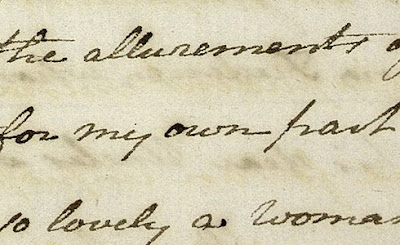 the allurements
for my own part
so lovely a woman